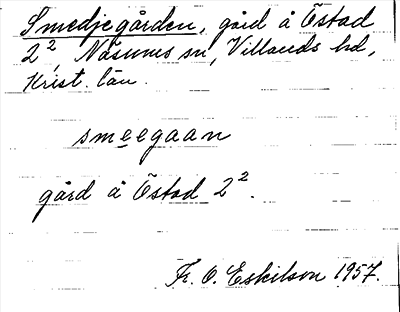 Smedjegården, gård å Östad
2², Näsums sn, Villands hd,
Krist. län.
smeegaan
gård å Östad 2².
Fr. O. Eskilson 1957.